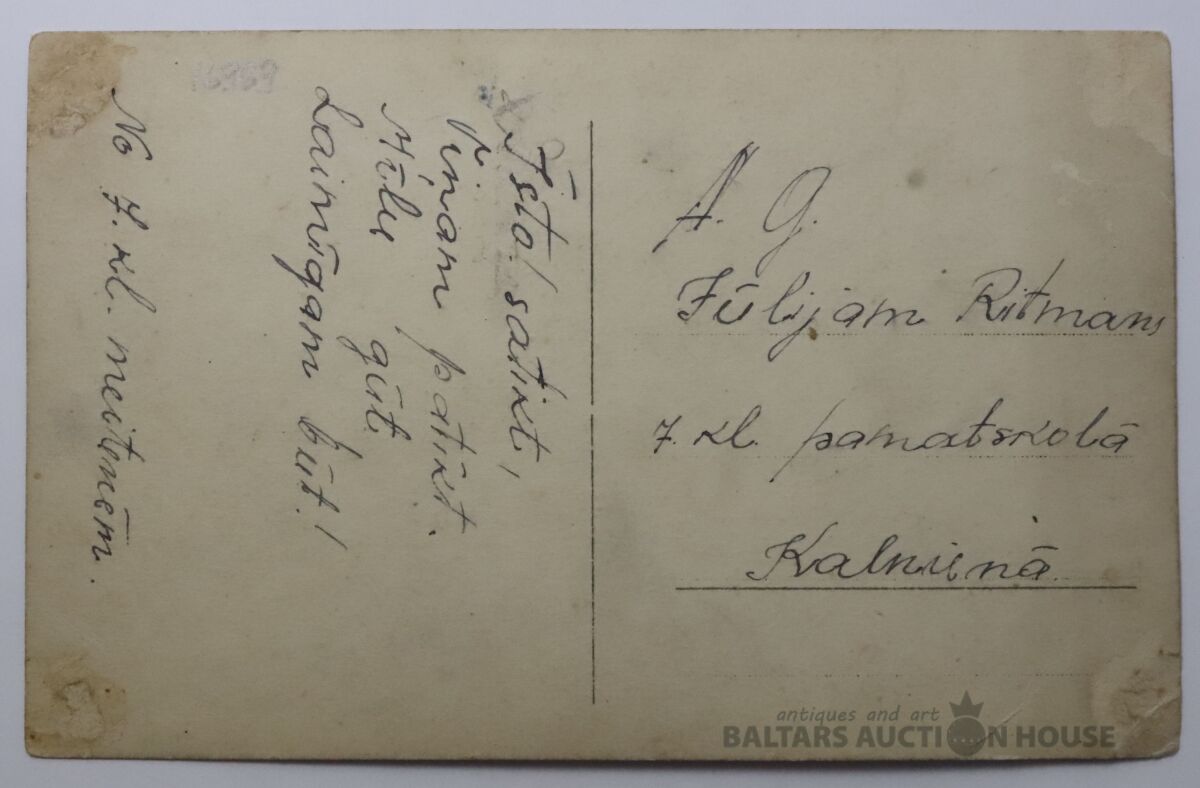 Īsto! satikt,
Viņam patikt.
Mīlu gūt,
Laimīgam būt!
No 7. kl. meitenēm.
A. G.
Jūlijam Ritmans
7. kl. pamatskolā
Kalnienā
antiques and art
BALTARS AUCTION HOUSE